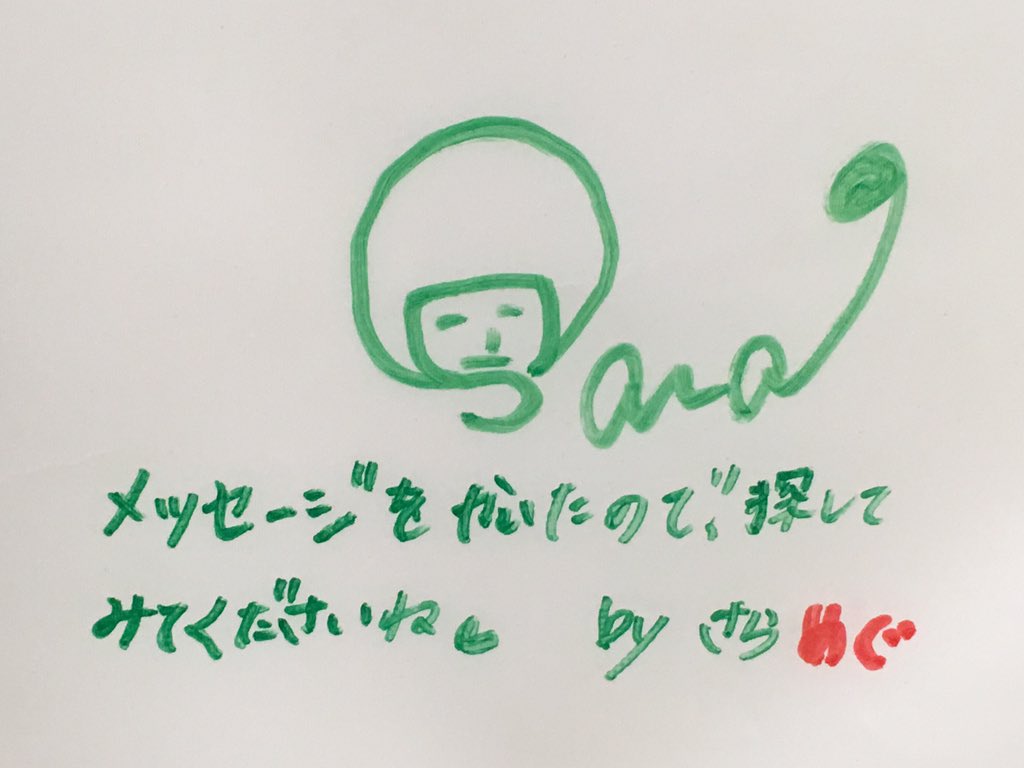 Sara
メッセージをかいたので、探して
みてくださいね。 by さらめぐ